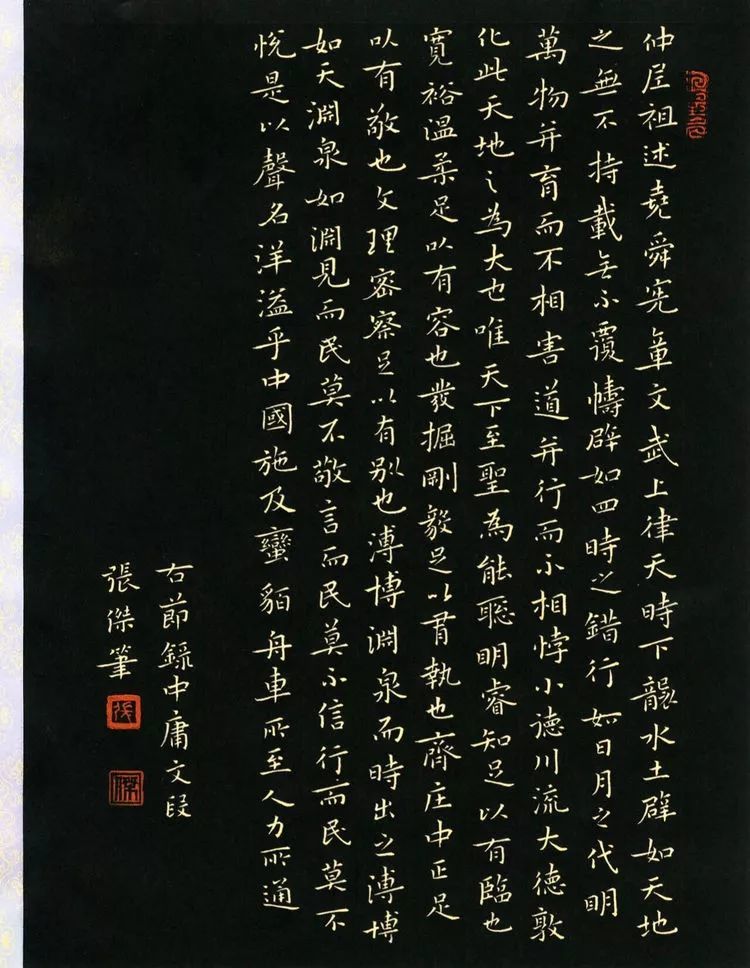 仲尼祖述堯舜憲章文武上律天時下襲水土辟如天地
之無不持載無不覆幬辟如四時之錯行如日月之代明
萬物并育而不相害道并行而不相悖小德川流大德敦
化此天地之為大也唯天下至聖為能聡明睿知足以有臨也
寬裕溫柔足以有容也發掘剛毅足以有執也齊庄中正足
以有敬也文理密察足以有别也溥博淵泉而時出之溥博
如天淵泉如淵見而民莫不敬言而民莫不信行而民莫不
悅是以聲名洋溢乎中國施及蠻貊舟車所至人力所通
右節錄中庸文段
張傑筆